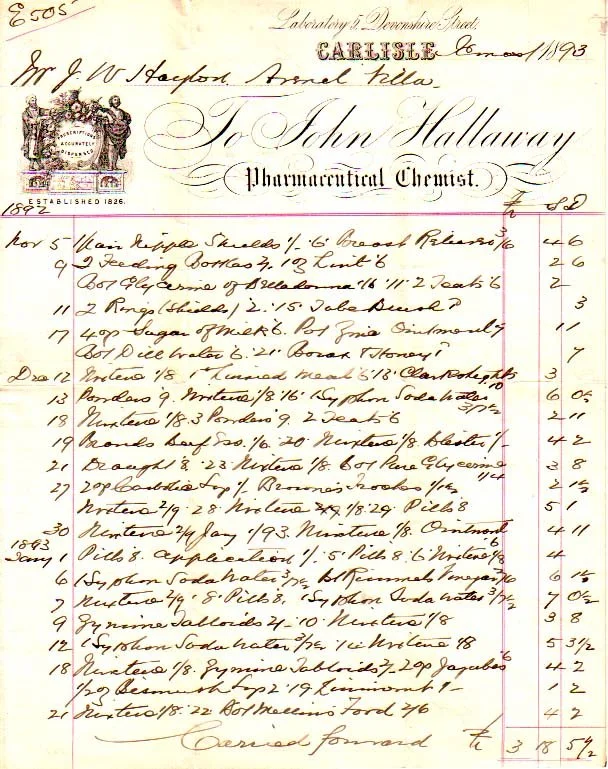 E505
Laboratory 5, Devonshire Street,
CARLISLE 1893
Mr J. W Hayton. Villa
PRESCRIPTIONS ACCURATELY DISPENSED
To John Hallaway
Pharmaceutical Chemist.
ESTABLISHED 1826.
1892 S D
Nov 5 1 Pair Nipple Shields 1/- 6 Breast Reliever 3/6 4 6
9 2 Feeding Bottles 2/- 1 oz Lint 6 2 6
Bot Glycerine of Belladonna 1/6 11 2 Teats 6 2
11 2 Rings (Shields) 2. 15 Tube Brush 3
17 4 oz Sugar of Milk 6. Pot Zinc Ointment 11
Bot Dill Water 6. 21. Borax & Honey 7
Dec 12 Mixture 1/8 Linseed Meal 6 13 3
13 Powders 9. Mixture 1/8 16 1 Syphon Soda Water 3/7½ 6 0½
18 Mixture 1/8 3 Powders 9. 2 Teats 6 2 11
19 Brands Beef Ess. 1/6 20 Mixture 1/8 Blister 1/- 4 2
21 Draught 8. 23 Mixture 1/8 bot Pure Glycerine 1/4 3 8
27 2 oz 1/- Browne's Troches 1/1½ 2 1½
Mixture 2/9 28 Mixture 1/8 29 Pills 8 5 1
30 Mixture 2/9 Jany 1/93. Mixture 1/8 Ointment 6 4 11
1893
Jany 1 Pills 8. application 1/- 5 Pills 8. 6 Mixture 1/8 4
6 1 Syphon Soda Water 3/7½ Bt Rimmels Vinegar 2/6 6 1½
7 Mixture 2/9 8 Pills 8. 1 Syphon Soda Water 3/7½ 7 0½
9 Zymine Tabloids 2/- 10 Mixture 1/8 3 8
12 1 Syphon Soda Water 3/7½ Mixture 1/8 5 3½
18 Mixture 1/8. Zymine Tabloids 2/- 2 oz Jujubes 6 4 2
2 19 Liniment 1 2
21 Mixture 1/8. 22 Bot Mellins Food 2/6 4 2
Carried forward 3 18 5½